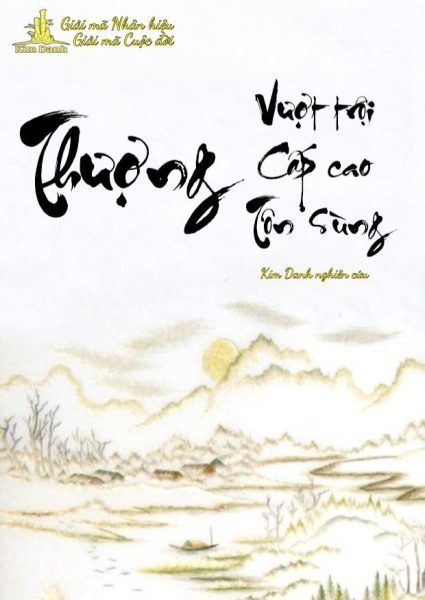 Giải mã Nhân hiệu
Giải mã Cuộc đời
Kim Danh
Thượng
Vượt trội
Cấp cao
Tôn sùng
Kim Danh nghiên cứu